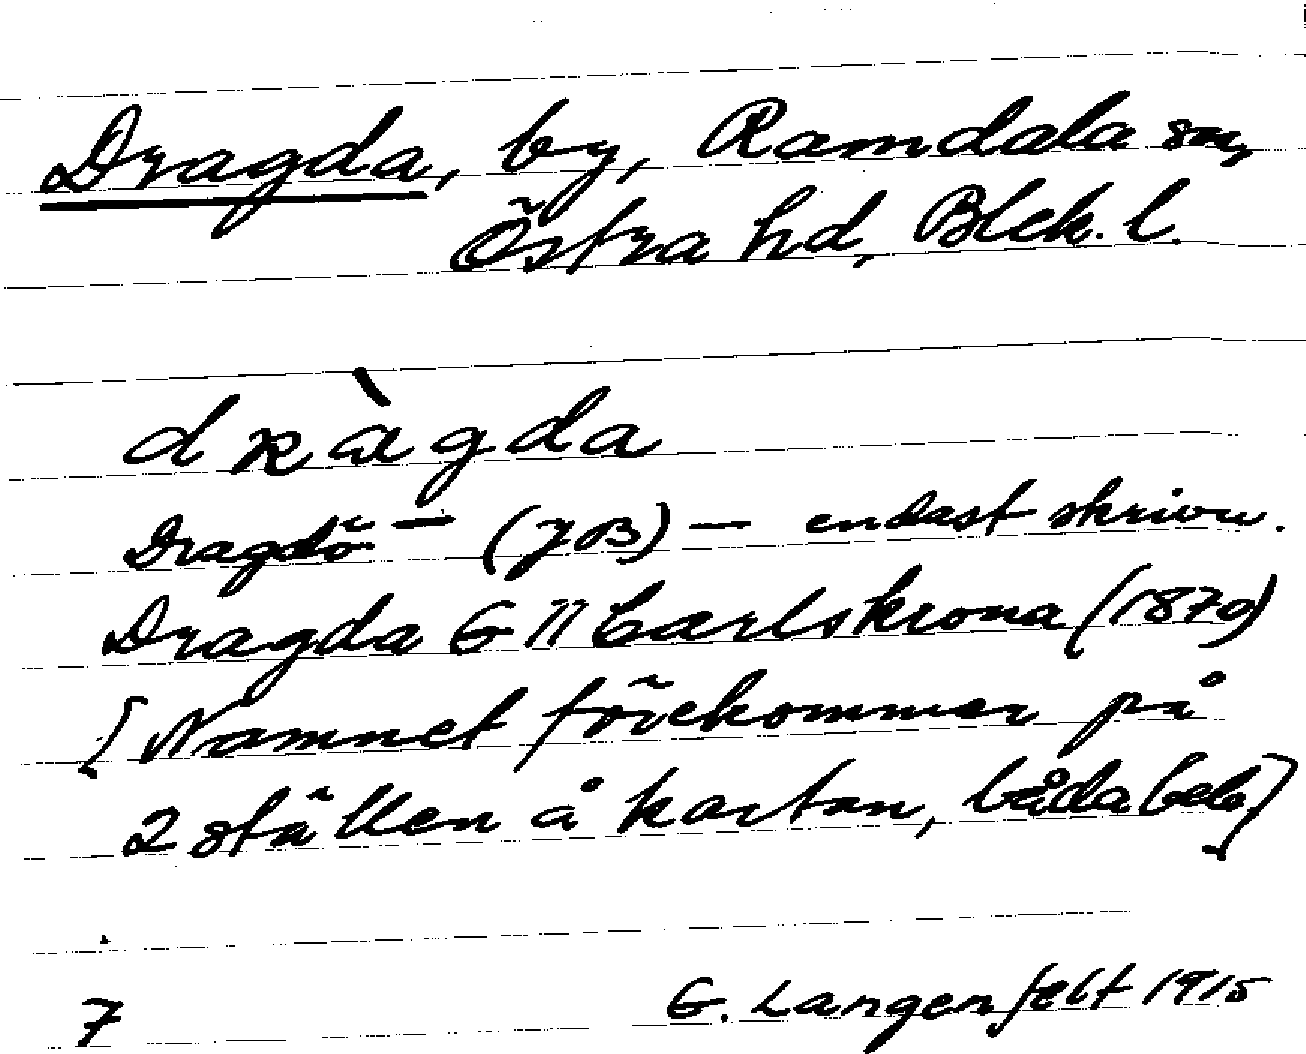 Dragda, by, Ramdala sn,
Östra hd, Blek. l.
dràgda
Dragdö — (JB) — endast skrivn.
Dragda G II Carlskrona (1870)
[Namnet förekommer på
2 ställen å kartan, båda beb.]
7 G. Langenfelt 1915